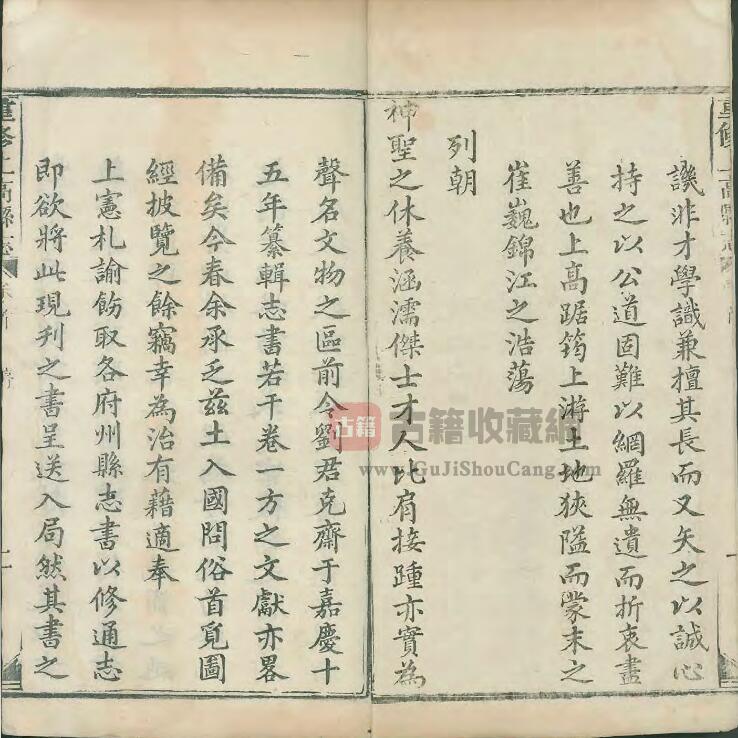 譏非才學識兼擅其長而又矢之以誠心
持之以公道固難以網羅無遺而折衷盡
善也上高踞筠上游土地狹隘而蒙末之
崔巍錦江之浩蕩
列朝
神聖之休養涵濡傑士才人比肩接踵亦實為
聲名文物之區前令劉君克齋于嘉慶十
五年纂輯志書若干卷一方之文獻亦畧
備矣今春余承乏茲土入國問俗首覓圖
經披覽之餘竊幸為治有藉適奉
上憲札諭飭取各府州縣志書以修通志
即欲將此現刊之書呈送入局然其書之
重修上高縣志
古籍
古籍收藏網
www.GuJiShouCang.com